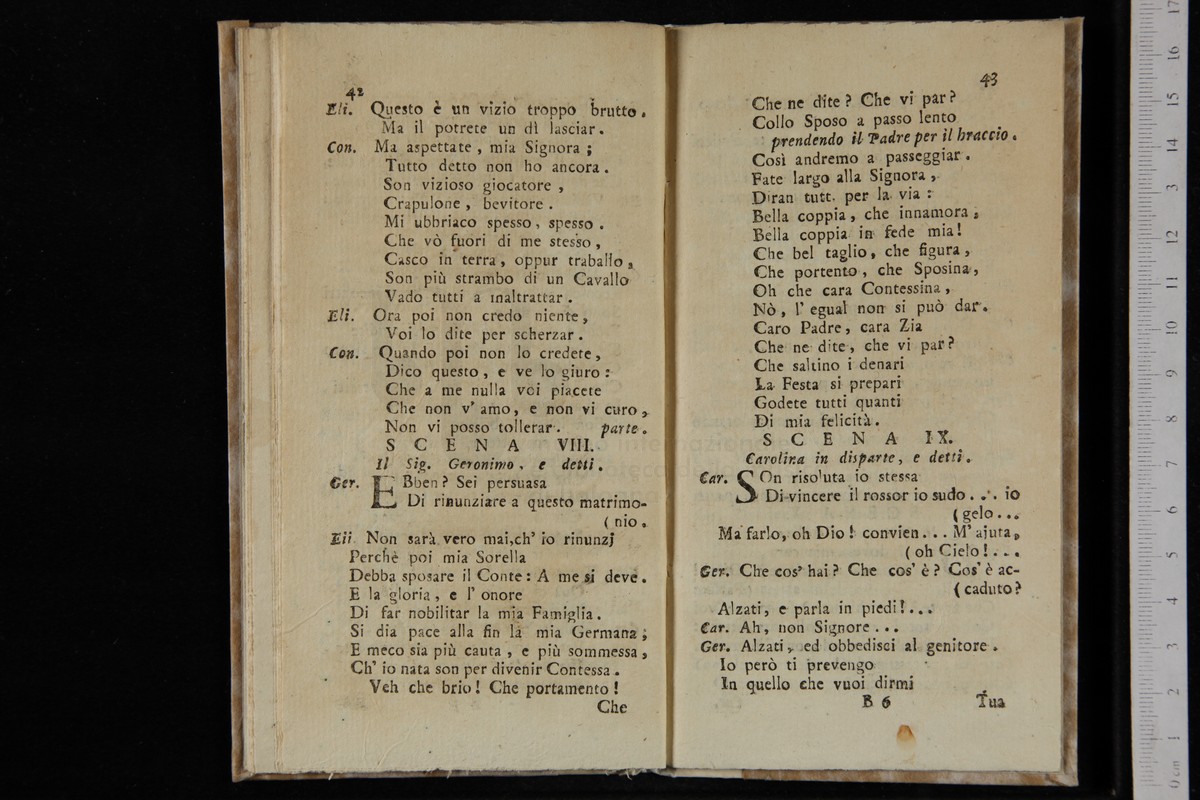 42
Eli. Questo è un vizio troppo brutto.
Ma il potrete un dì lasciar.
Con. Ma aspettate, mia Signora;
Tutto detto non ho ancora.
Son vizioso giocatore,
Crapulone, bevitore.
Mi ubbriaco spesso, spesso.
Che vò fuori di me stesso,
Casco in terra, oppur traballo,
Son più strambo di un Cavallo
Vado tutti a maltrattar.
Eli. Ora poi non credo niente,
Voi lo dite per scherzar.
Con. Quando poi non lo credete,
Dico questo, e ve lo giuro:
Che a me nulla voi piacete
Che non v' amo, e non vi curo,
Non vi posso tollerar. parte.
SCENA VIII.
Il Sig. Geronimo, e detti.
Ger. EBben? Sei persuasa
Di rinunziare a questo matrimo-
(nio.
Eli Non sarà vero mai, ch' io rinunzj
Perchè poi mia Sorella
Debba sposare il Conte: A me si deve.
E la gloria, e l' onore
Di far nobilitar la mia Famiglia.
Si dia pace alla fin la mia Germana;
E meco sia più cauta, e più sommessa,
Ch' io nata son per divenir Contessa.
Veh che brio! Che portamento!
Che
43
Che ne dite? Che vi par?
Collo Sposo a passo lento
prendendo il Padre per il braccio.
Così andremo a passeggiar.
Fate largo alla Signora,
Diran tutt. per la via:
Bella coppia, che innamora;
Bella coppia in fede mia!
Che bel taglio, che figura,
Che portento, che Sposina,
Oh che cara Contessina,
Nò, l' egual non si può dar.
Caro Padre, cara Zia
Che ne dite, che vi par?
Che saltino i denari
La Festa si prepari
Godete tutti quanti
Di mia felicità.
SCENA IX.
Carolina in disparte, e detti.
Car. SOn risoluta io stessa
Di vincere il rossor io sudo... io
(gelo...
Ma farlo, oh Dio! convien... M' ajuta,
(oh Cielo!...
Ger. Che cos' hai? Che cos' è? Cos' è ac-
(caduto?
Alzati, e parla in piedi!...
Car. Ah, non Signore...
Ger. Alzati, ed obbedisci al genitore.
Io però ti prevengo
In quello che vuoi dirmi
B 6 Tua